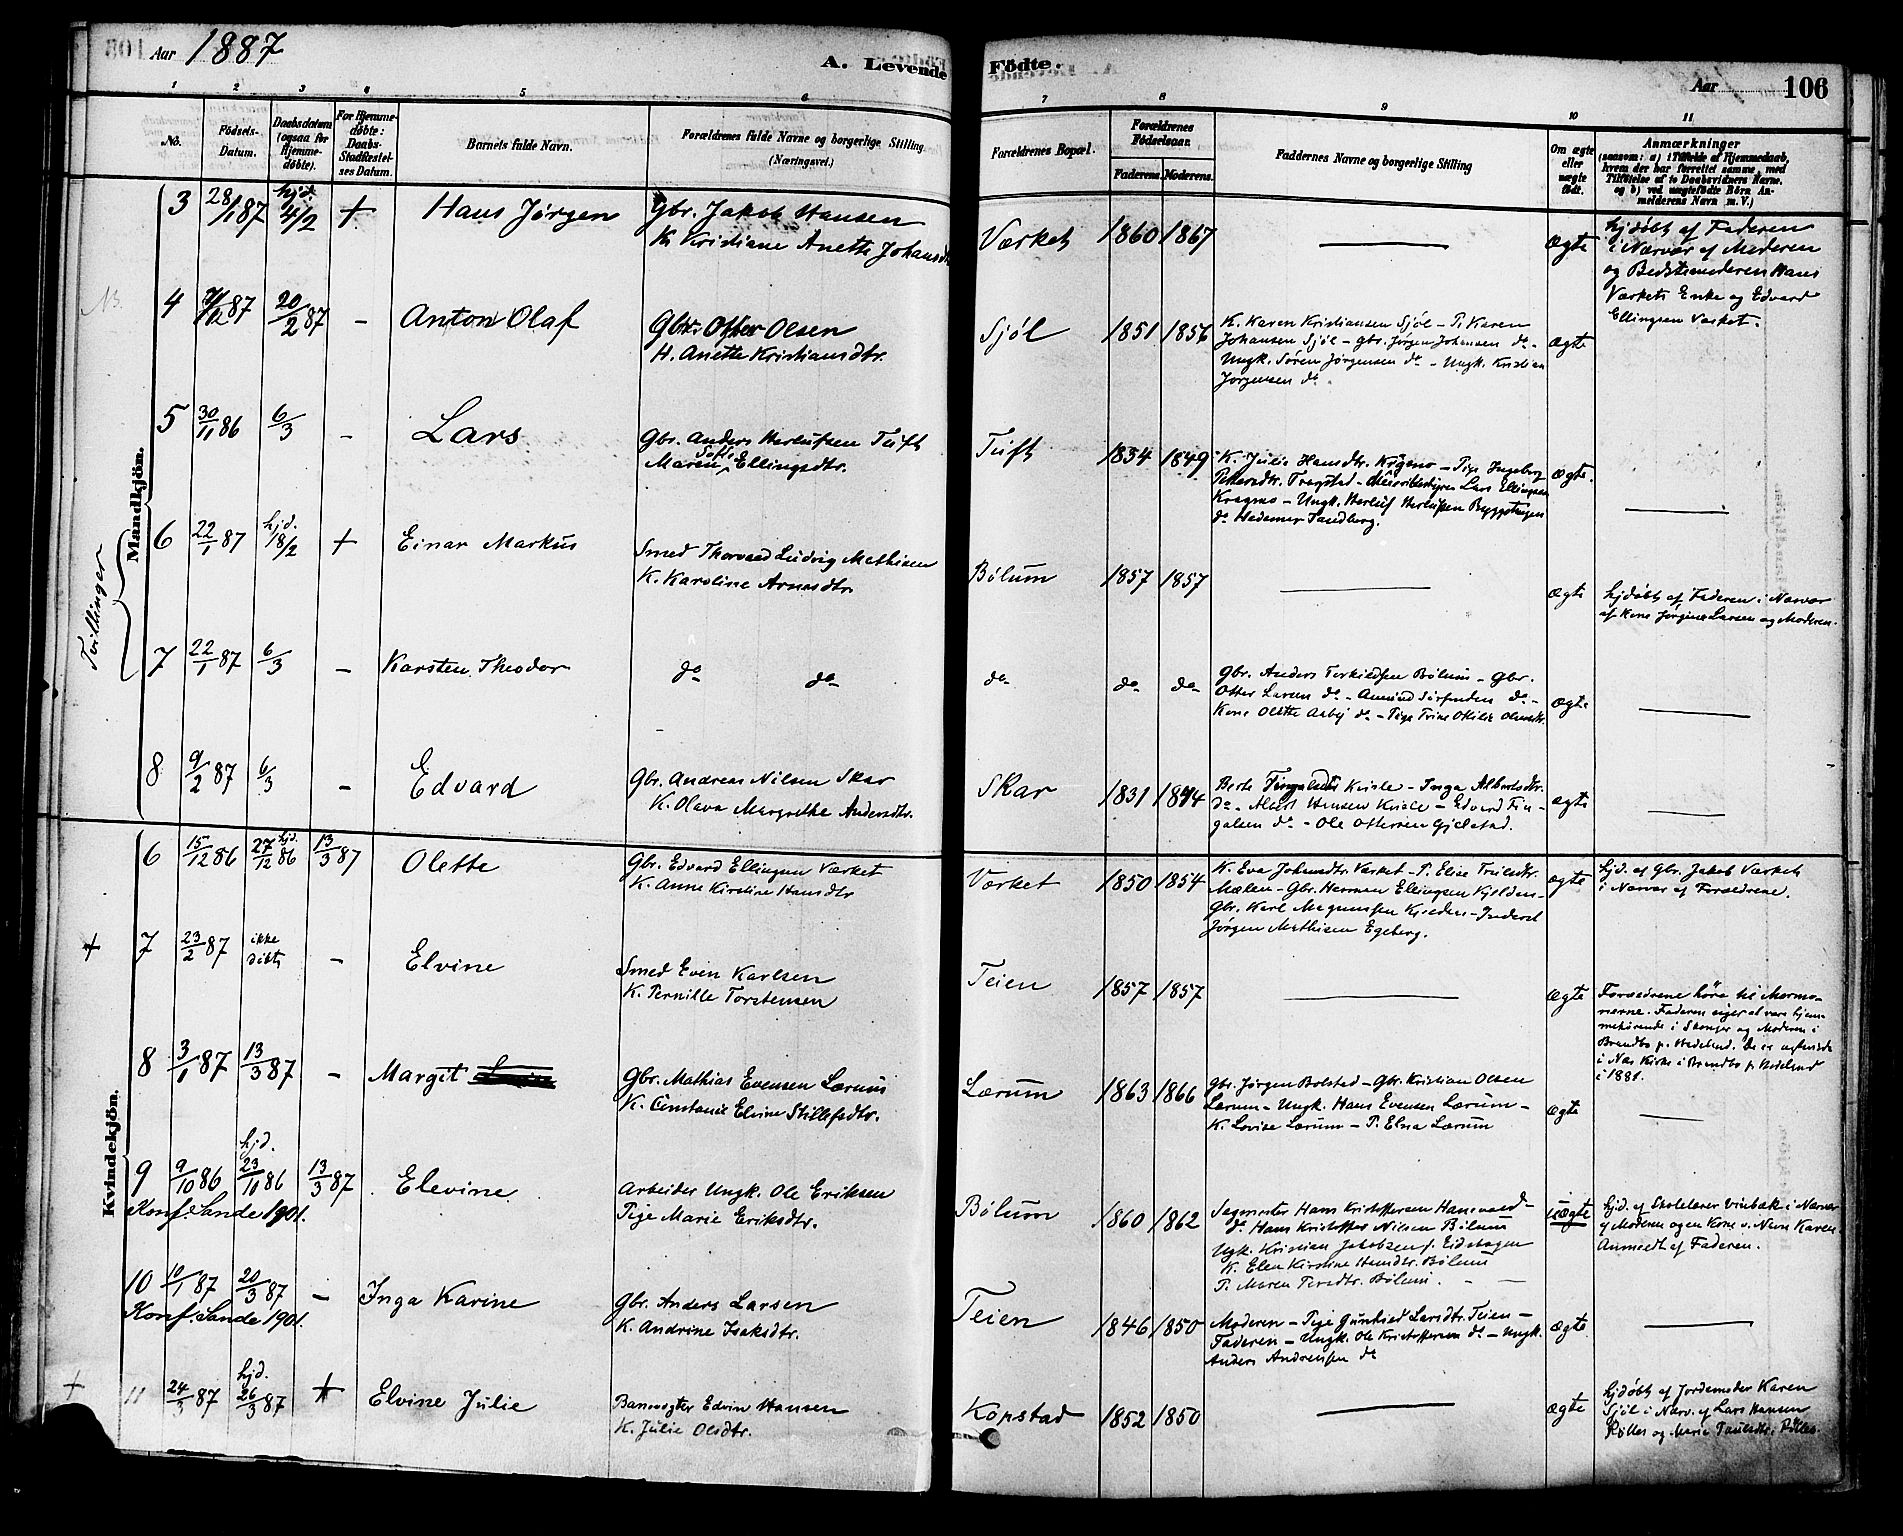 Aar 1887
A. Levende Födte.
Aar 106
1 2 3 4 5 6 7 8 9 10 11
No.
Födsels-Datum.
Daabsdatum (ogsaa for Hjemmedöbte).
For Hjemmedöbte: Daabs-Stadfæstelses Datum.
Barnets fulde Navn.
Forældrenes fulde Navne og borgerlige Stilling (Næringsvei.)
Forældrenes Bopæl.
Forældrenes Födselsaar.
Faderens. Moderens.
Faddernes Navne og borgerlige Stilling
Om ægte eller uægte födt.
Anmærkninger
(saasom: a) i Tilfælde af Hjemmedaab, hvem der har forrettet samme, med Tilföielse af to Daabsvidners Navne, og b) ved uægtefödte Börn Anmelderens Navn m. V.)
Mandkjön.
3 28/1 87 hjd. 4/2 + Hans Jørgen
Gbr. Jakob Hansen
K. Kristiane Anette Johansdtr
Værket 1860 1867 — ægte
hjdøbt af Faderen
i Nærvær af Moderen
og Bedstemoderen Hans
Værkets Enke og Edvard
Ellingsen Værket.
4 7/2 87 20/2 87 - Anton Olaf
Gbr. Otter Olsen
H. Anette Kristiansdtr.
Sjøl 1851 1856
K. Karen Kristiansen Sjøl - P. Karen
Johansen Sjøl - gbr. Jørgen Johansen do -
Ungk. Søren Jørgensen do - Ungk. Kristian
Jørgensen do.
ægte
5 30/11 86 6/3 - Lars
Gbr. Anders Herlufsen Tuft
Maren Sofie Ellingsdtr.
Tuft 1834 1849
K. Julie Hansdtr. Kragmo - Pige Ingeborg
Pettersdtr. Trogstad - Lars Ellingsen
Kragmo - Ungk. Herluf Herlufsen
do Sandberg.
ægte. —
Tvillinger
6 22/1 87 hjd. 18/2 + Einar Markus
Smed Thorvald Ludvig Mathisen
K. Karoline Arnesdtr.
Bølum 1857 1857 — ægte
hjdøbt af Faderen i Nærvær
af Kone Jørgine Larsen og Moderen.
7 22/1 87 6/3 - Karsten Theodor
do do
do do do
Gbr. Anders Terkildsen Bølum - Gbr.
Otter Larsen do - Amund do -
Kone Olette Aasby do - Pige Trine Otilie Olsendtr.
ægte —
8 9/2 87 6/3 - Edvard
Gbr. Andreas Nilsen Skar
K. Olava Margrethe Andersdtr.
Skar 1831 1844
Berte Fingalsdtr Kisle - Inga Albertsdtr.
do - Albert Hansen Kisle - Edvard Fin-
galsen do - Ole Ottersen Gjelstad.
ægte —
Kvindekjön.
6 15/12 86 hjd. 27/12 86 13/3 87 Olette
Gbr. Edvard Ellingsen Værket
K. Anne Kirstine Hansdtr
Værket 1850 1854
K. Eva Johansdtr Værket - P. Elise Trulsdtr.
Mælen - Gbr. Herman Ellingsen Kjelden -
Gbr. Karl Magnussen Kjelden - Inderst
Jørgen Mathisen Egeberg.
ægte
hjd. af Gbr. Jakob Værket
i Nærvær af Forældrene.
+ 7 23/2 87 ikke døbt - Elvine
Smed Even Karlsen
K. Pernille Torstensen
Teien 1857 1857 — ægte
Forældrene höre til Mormo-
nerne. Faderen siger at være hjem-
mehørende i Skoger og Moderen i
Brandbo p. Hadeland. De er ægteviede
i Næs Kirke i Brandbo p. Hadeland
i 1881.
8 3/1 87 13/3 87 - Margit
Gbr. Mathias Evensen Lærum
K. Constanse Elvine Stillefsdtr.
Lærum 1863 1866
Gbr. Jørgen Bolstad - Gbr. Kristian Olsen
Lærum - Ungk. Hans Evensen Lærum -
K. Lovise Lærum - P. Elna Lærum
ægte —
9 9/10 86 hjd. 23/11 86 13/3 87 Elevine
Konf. Sande 1901.
Arbeider Ungk. Ole Eriksen
Pige Marie Eriksdtr.
Bølum 1860 1862
Sagmester Hans Kristoffersen Hanevold -
do Hans Kristoffer Nilsen Bølum
Ugk. Kristian Jakobsen f. Eidshagen
K. Elen Kirstine Hansdtr. Bølum
P. Maren Persdtr. Bølum. - -
uægte
hjd. af Skolelærer Vinbæk i Nærvær
af Moderen og en Kone v. Navn Karen
Anmeldt af Faderen.
10 10/1 87 20/3 87 - Inga Karine
Konf. Sande 1901.
Gbr. Anders Larsen
K. Andrine Isaksdtr.
Teien 1846 1850
Moderen - Pige Gunhild Larsdtr. Teien -
Faderen - Ungk. Ole Kristoffersen do - Ungk.
Anders Andreassen do
ægte —
+ 11 24/3 87 hjd. 26/3 87 + Elvine Julie
Banevogter Edvin Hansen
K. Julie Olsdtr.
Kopstad 1852 1850 — ægte
hjdøbt af Jordemoder Karen
Sjøl i Nærv. af Lars Hansen
Rølles og Marie Paulsdtr. Rølles.